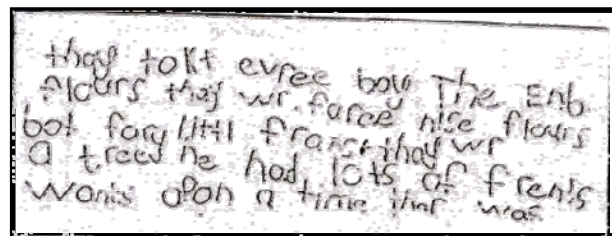 thay tolkt evree The Enb.
flours thay wr. faree nise flours
bot fory littl thay wr
a tree he had lots of frenis
wonis apon a time ther was